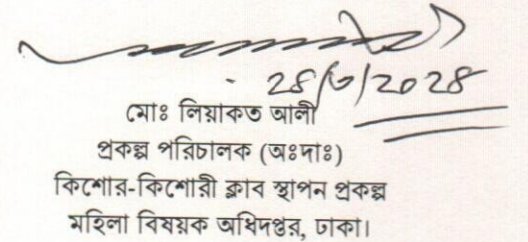 ২৪/৩/২০২৪
মোঃ লিয়াকত আলী
প্রকল্প পরিচালক (অঃদাঃ)
কিশোর-কিশোরী ক্লাব স্থাপন প্রকল্প
মহিলা বিষয়ক অধিদপ্তর, ঢাকা।